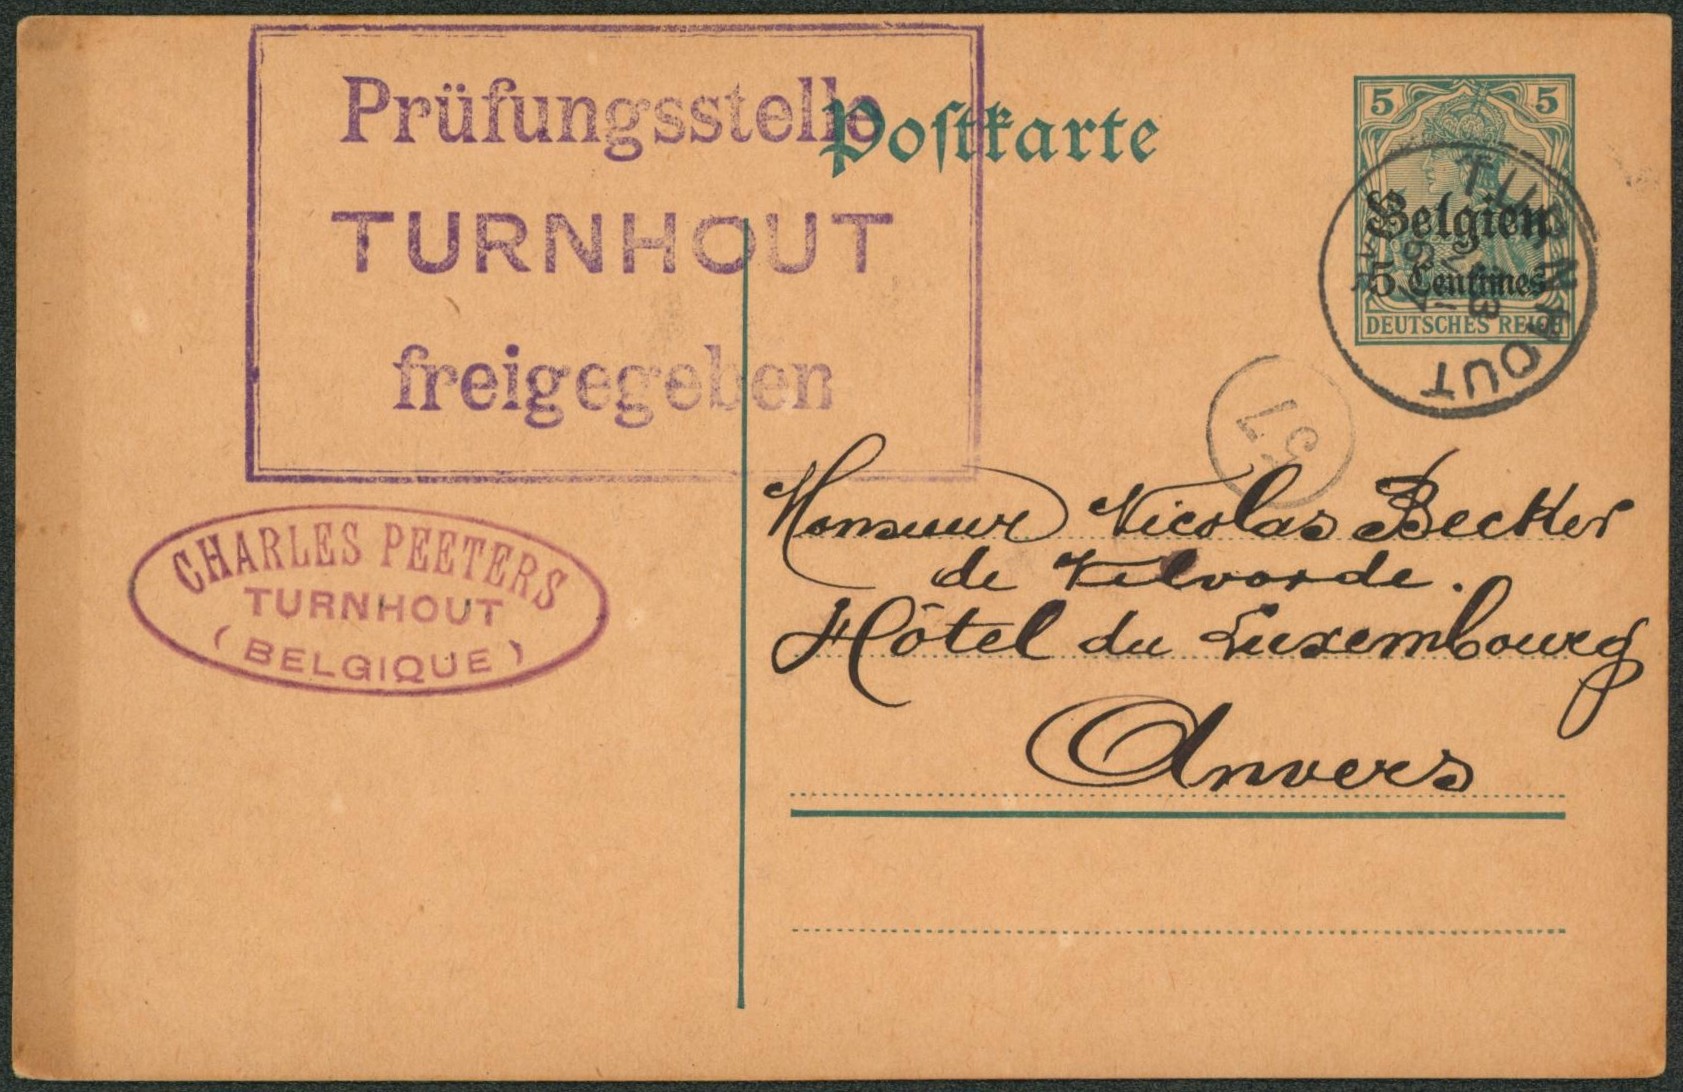 Prüfungsstelle
TURNHOUT
freigegeben
Postkarte
5 5
Belgien
5 Centimes
DEUTSCHES REICH
TURNHOUT
57
CHARLES PEETERS
TURNHOUT
(BELGIQUE)
Monsieur Nicolas Becker
de Vilvorde.
Hôtel du Luxembourg
Anvers